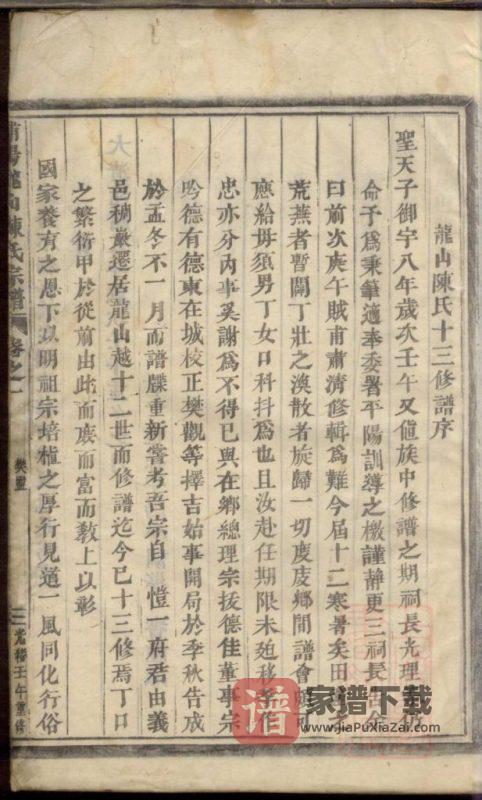 龍山陳氏十三修譜序
聖天子御宇八年歲次壬午又值族中修譜之期祠長光理仍
命予爲秉筆適奉委署平陽訓導之檄謹靜更三祠長告余
曰前次庚午賊甫肅清修輯爲難今屆十二寒暑矣田
荒蕪者暫闢丁壯之渙散者旋歸一切慶度鄉間譜會
應給毋須男丁女口科抖爲也且汝赴任期限未廹移孝作
忠亦分內事奚謝爲不得已與在鄉總理宗援德佳董事宗
吟德有德東在城校正樊觀等擇吉始事開局於季秋告成
於孟冬不一月而譜牒重新嘗考吾宗自 愷一府君由義
邑稠巖遷居龍山越十二世而修譜迄今已十三修焉丁口
之繁衍甲於從前由此而庶而富而敎上以彰
國家養育之恩下以明祖宗培植之厚行見道一風同化行俗
陽龍山陳氏宗譜
卷之一
樊㙯
三
光緒壬午重修
譜
家谱下载
www.JiaPuXiaZai.com